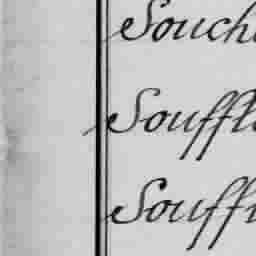 Souch
Souffl
Souff